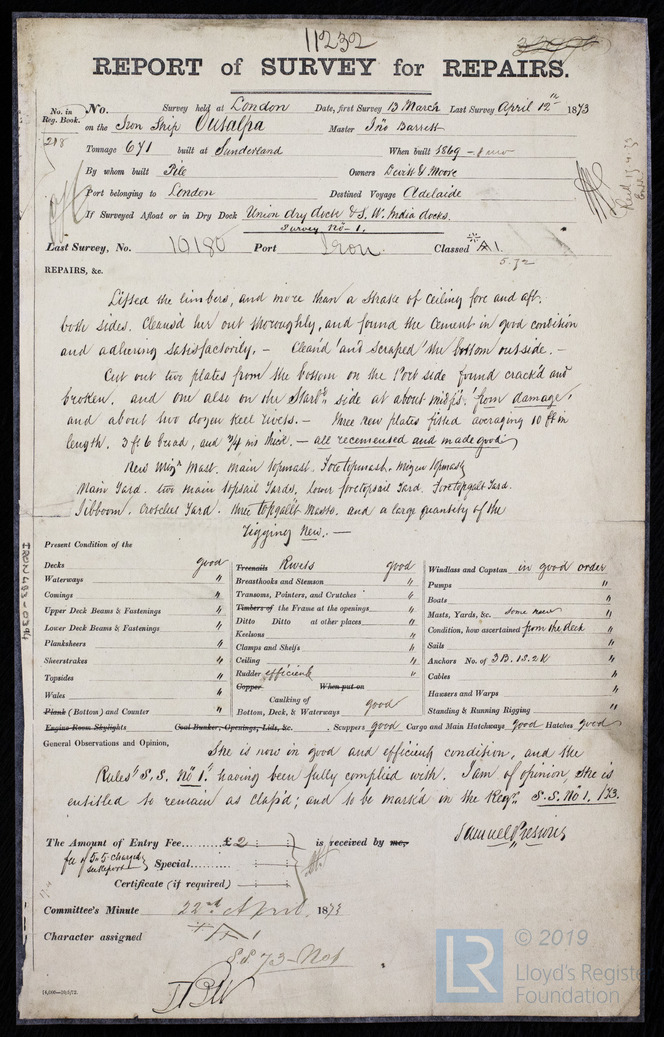 11232
REPORT of SURVEY for REPAIRS.
No. in Reg. Book.
218
No. Survey held at London Date, first Survey 13 March Last Survey April 12th 1873
on the Iron Ship Master Jno Barrett
Tonnage 671 built at Sunderland When built 1869
By whom built Pile Owners Devitt & Moore
Port belonging to London Destined Voyage Adelaide
If Surveyed Afloat or in Dry Dock Union dry dock & S. W. India docks.
Survey No 1.
Last Survey, No. 10180 Port Iron Classed A1.
5.72
REPAIRS, &c.
Lifted the limbers, and more than a strake of ceiling fore and aft.
both sides. Cleans'd her out thoroughly, and found the Cement in good condition
and adhering satisfactorily. — Clean'd and scraped the bottom outside. —
Cut out two plates from the bottom on the Port side found crack'd and
broken. and one also on the Starbd side at about midps. from damage,
and about two dozen keel rivets. — three new plates fitted averaging 10 ft in
length. 3 ft 6 broad, and 3/4 ins thick. — all recemented and made good.
New Mizn Mast. main topmast. Foretopmast. mizen topmast
Main Yard. two main topsail Yards, lower foretopsail Yard. Foretopgalt Yard.
Jibboom. Crotchet Yard. three topgallt Masts. and a large quantity of the
rigging New. —
Present Condition of the
Decks good
Waterways "
Comings "
Upper Deck Beams & Fastenings "
Lower Deck Beams & Fastenings "
Planksheers "
Sheerstrakes "
Topsides "
Wales "
Plank (Bottom) and Counter "
Treenails Rivets good
Breasthooks and Stemson "
Transoms, Pointers, and Crutches "
Timbers of the Frame at the openings "
Ditto Ditto at other places "
Keelsons "
Clamps and Shelfs "
Ceiling "
Rudder efficient "
Copper When put on
Caulking of
Bottom, Deck, & Waterways good
Windlass and Capstan in good order
Pumps "
Boats "
Masts, Yards, &c. some new "
Condition, how ascertained from the deck
Sails "
Anchors No. of 3B. 1S. 2K "
Cables "
Hawsers and Warps "
Standing & Running Rigging "
Engine Room Skylights Coal Bunker, Openings, Lids, &c. Scuppers good Cargo and Main Hatchways good Hatches good
General Observations and Opinion, She is now in good and efficient condition, and the
Rules S.S. No 1. having been fully complied with. I am of opinion, she is
entitled to remain as class'd; and to be mark'd in the Regr. S.S. No 1. /73.
The Amount of Entry Fee £2 : : is received by me,
fee of 5.5 charged
Special : :
Certificate (if required) : :
Samuel
Committee's Minute 22nd April, 1873
Character assigned A 1
SS 73 - No 1
14,000—20/5/72.
IRON 483-0394
LR
© 2019
Lloyd's Register
Foundation